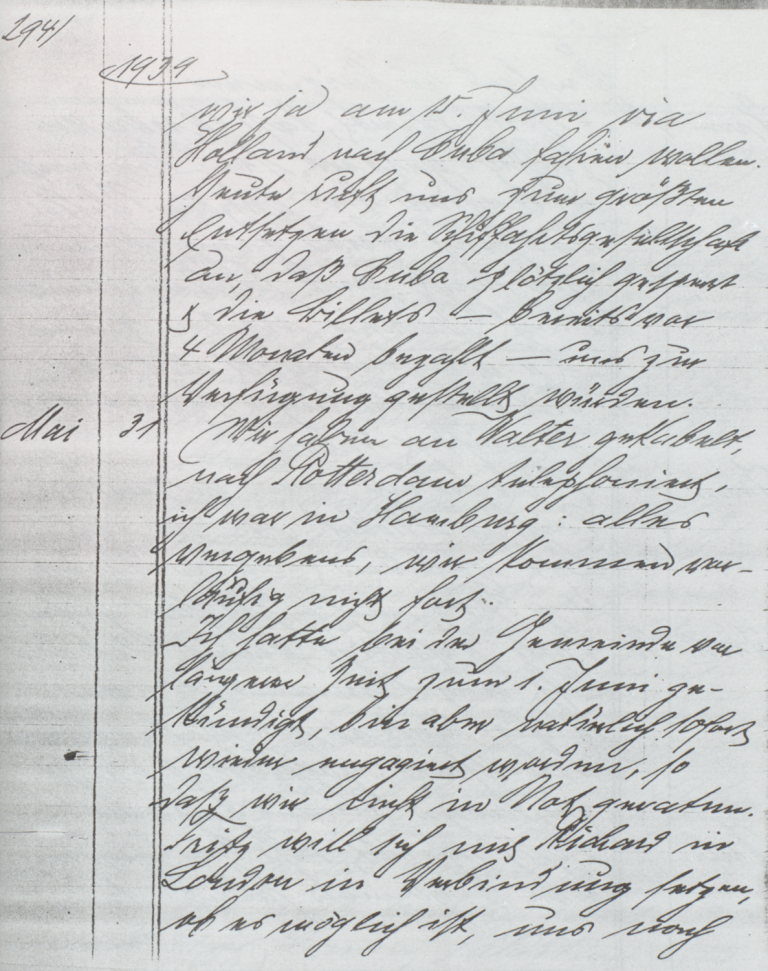 294/
1939
wir ja am 15. Juni via
Holland nach Cuba fahren wollen.
Heute ruft uns zum größten
Entsetzen die Schiffahrtsgesellschaft
an, daß Cuba plötzlich gesperrt
& die Billets — bereits vor
4 Monaten bezahlt — uns zur
Verfügung gestellt würden.
Mai 31 Wir haben an Walter gekabelt,
nach Rotterdam telephoniert,
ich war in Hamburg: alles
vergebens, wir kommen vor-
läufig nicht fort.
Ich hatte bei der Gemeinde vor
längerer Zeit zum 1. Juni ge-
kündigt, bin aber natürlich sofort
wieder engagiert worden, so
daß wir nicht in Not geraten.
Fritz will sich mit Richard in
London in Verbindung setzen,
ob es möglich ist, uns nach